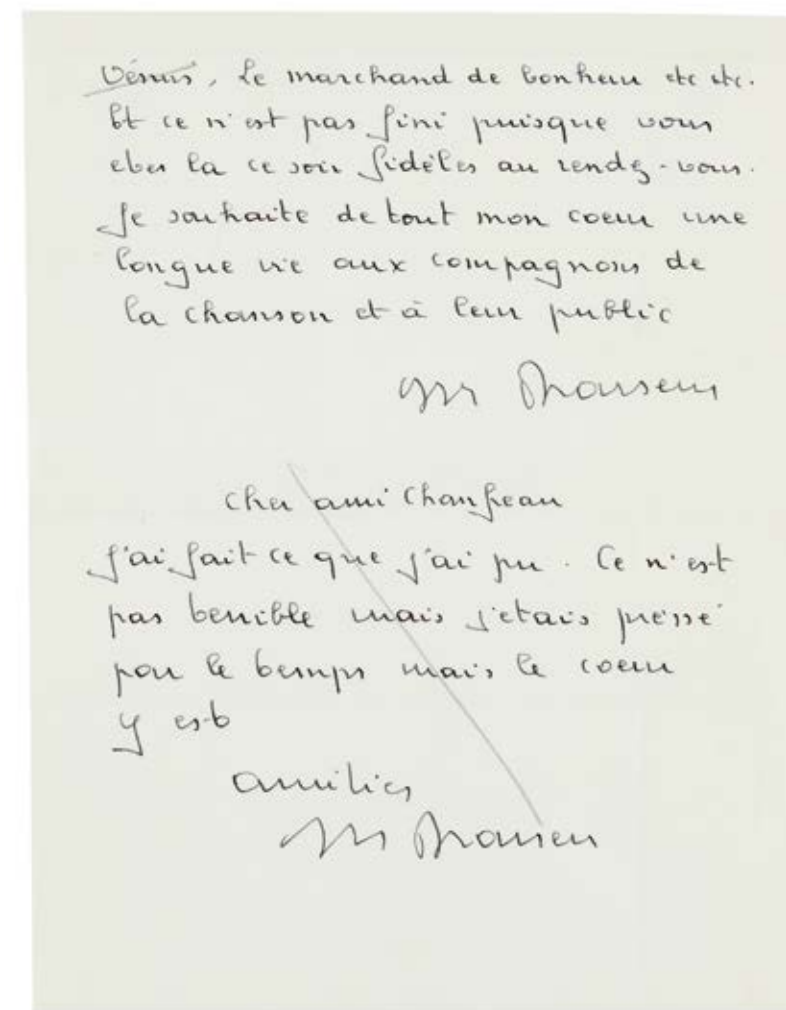 Vénus, Le marchand de bonheur etc etc.
Et ce n'est pas fini puisque vous
etes la ce soir fidèles au rendez-vous.
Je souhaite de tout mon coeur une
longue vie aux compagnons de
la chanson et à leur public
Brassens
cher ami Chanfreau
J'ai fait ce que j'ai pu. Ce n'est
pas terrible mais j'etais pressé
par le temps mais le coeur
y est
amitiés
Brassens